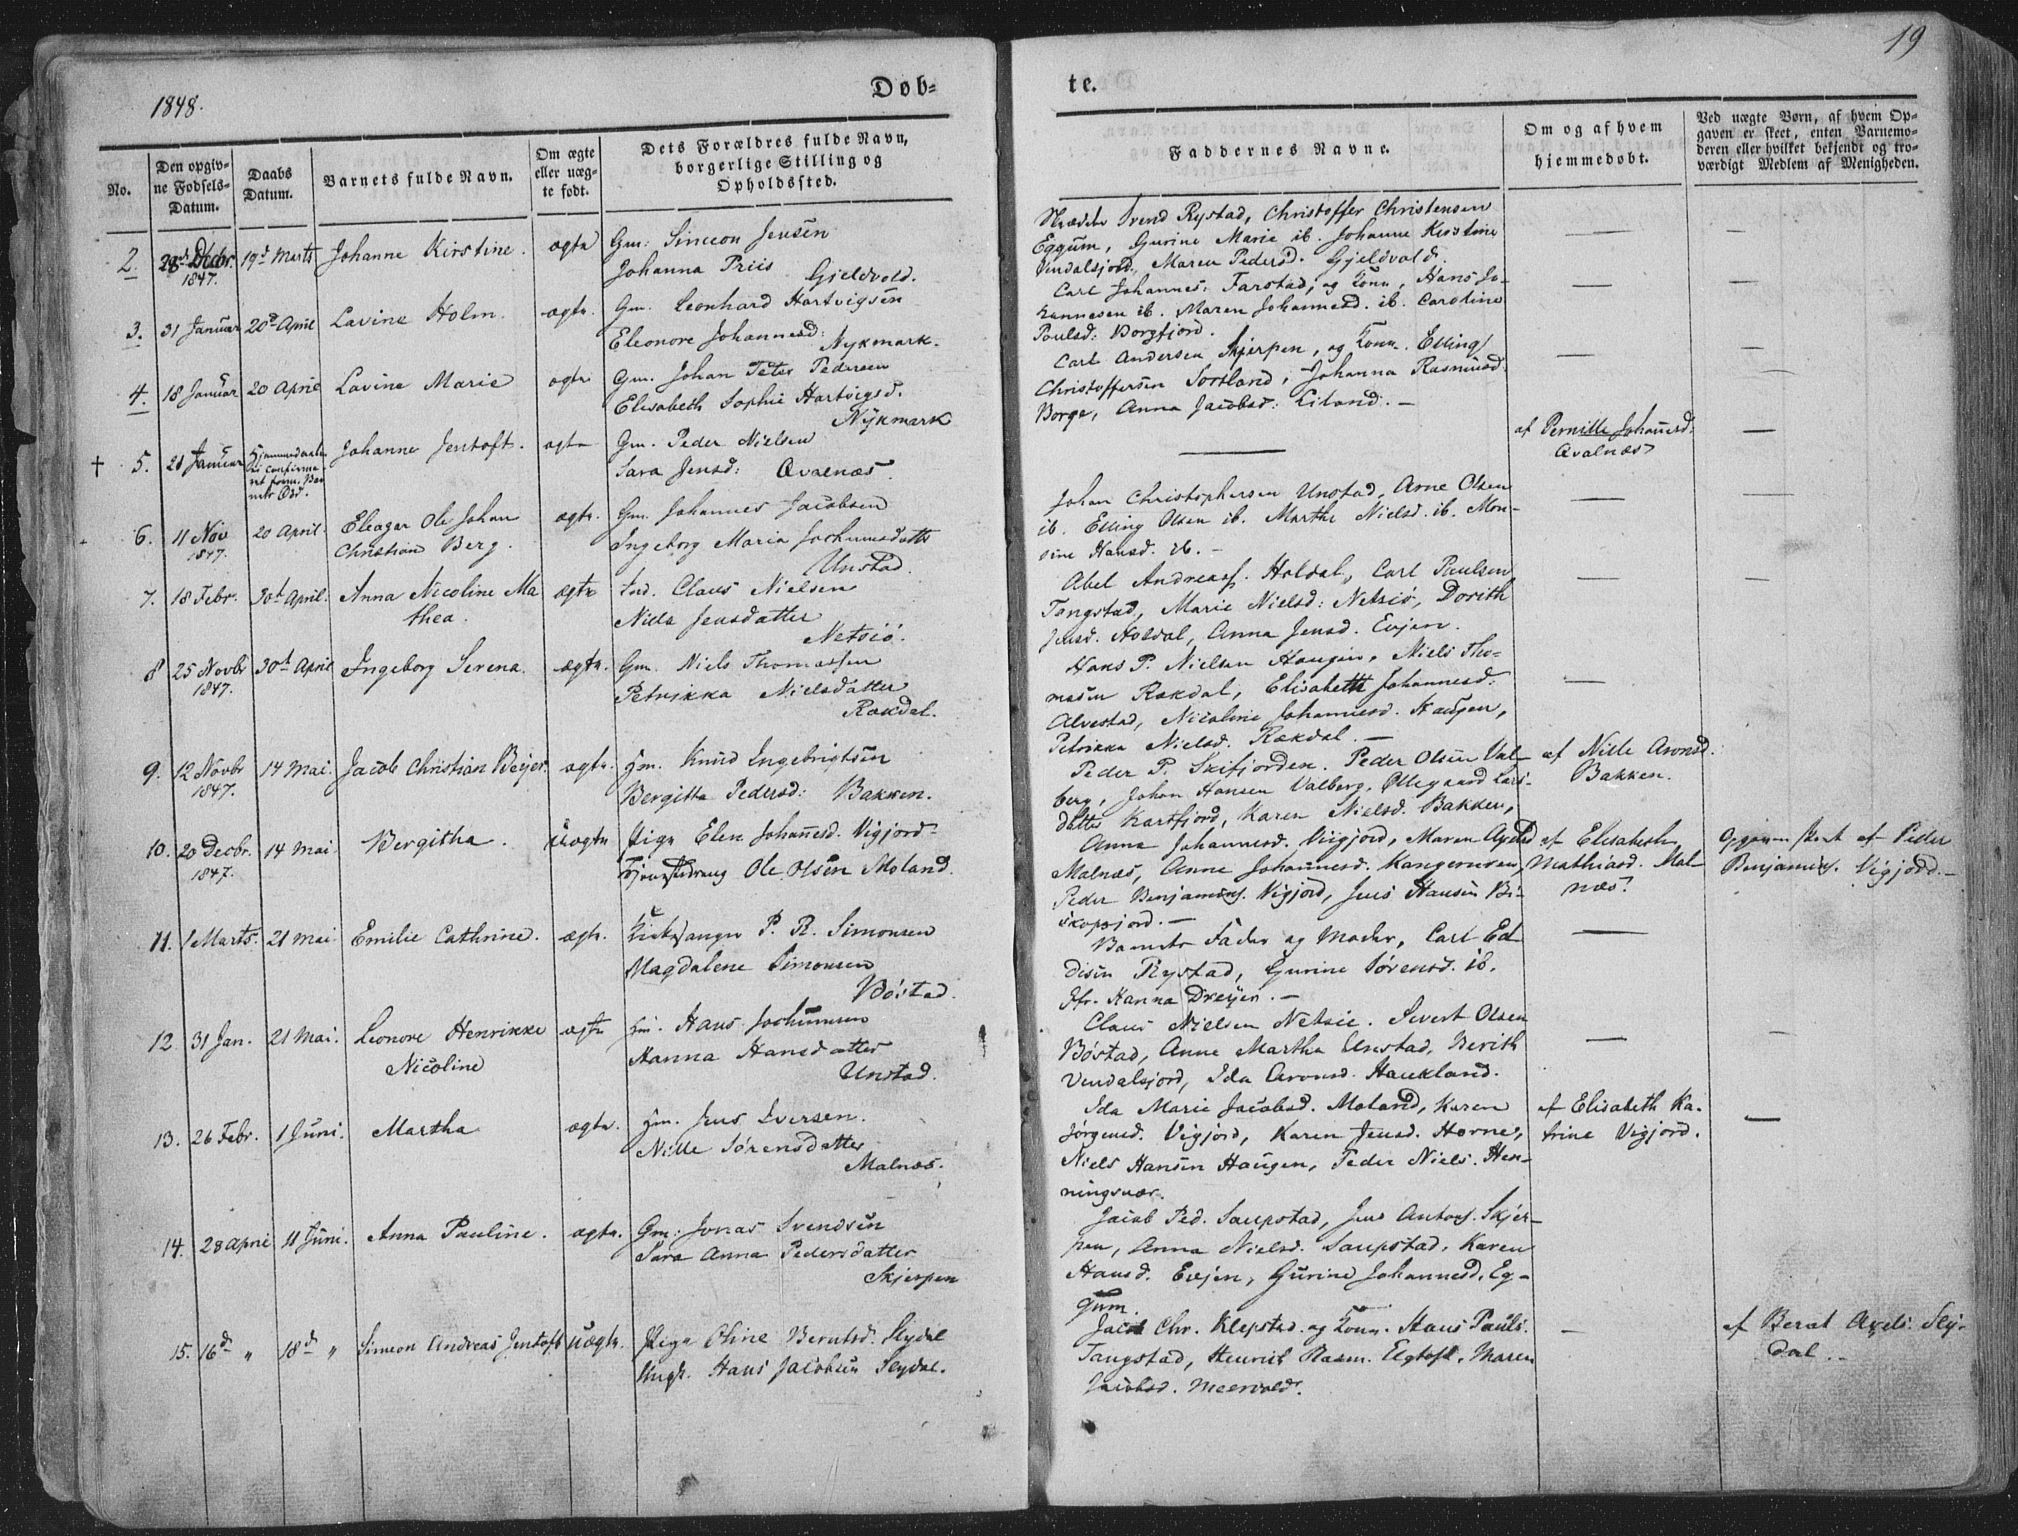 1848.
Döb=
te.
19
No.
Den opgiv-
ne Fødsels-
Datum.
Daabs
Datum.
Barnets fulde Navn.
Om ægte
eller uæg-
te født.
Dets Forældres fulde Navn,
borgerlige Stilling og
Opholdssted.
Faddernes Navne.
Om og af hvem
hjemmedøbt.
Ved uægte Børn, af hvem Op-
gaven er skeet, enten Barnemo-
deren eller hvilket bekjendt og tro-
værdigt Medlem af Menigheden.
2. Decbr. 19d Marts Johanne Kirstine. ægte Gm: Simeon Jensen
1847.
Johanna Priis Gjeldvold.
Trend Rystad, Christoffer Christensen
Eggum, Gurine Marie ib. Johanne Kirstine
Vendalsjord, Maren Pedersd. Gjeldvold.
3. 31 Januar 20d April Lavine Holm. ægte. Gm. Leonhard Hartvigsen
Eleonore Johannesd:
Nykmark.
Carl Johannes: Farstad, og Kone, Hans Jo-
hannesen ib. Maren Johannesd. ib. Caroline
Poulsd: Borgfjord.
4. 18 Januar 20 April Lavine Marie ægte Gm. Johan Peter Pedersen
Elisabeth Sophie Hartvigsd.
Nykmark
Carl Andersen Skjerpen, og Kone. Elling
Christoffersen Sortland, Johanna Rasmusd.
Borge, Anna Jacobsd: Liland. —
† 5. 21 Januar Johanne Jentoft. ægte Gm. Peder Nielsen
Sara Jensd: Qvalnæs.
af Pernille Johannesd:
Qvalnæs
6. 11 Nov 20 April. Eleagar Ole Johan ægte. Gm. Johannes Jacobsen
1847. Christian Berg. Ingeborg Maria Jochumsdatter
Unstad.
Johan Christophersen Unstad, Arne Olsen
ib. Elling Olsen ib. Marthe Nielsd. ib. Mon-
sine Hansd. ib. —
7. 18 Febr. 30t April. Anna Nicoline Ma ægte Ind. Claus Nielsen
thea. Niels Jensdatter
Netsiö.
Abel Andreass. Holdal, Carl Paulsen
Tangstad, Marie Nielsd: Netsiö, Dorith
Jensd. Holdal, Anna Jensd. Evjen.
8 25 Novbr 30t April Ingeborg Serena. ægte. Gm. Niels Thomassen
1847. Petrikka Nielsdatter
Rækdal.
Hans P. Nielsen Haugen, Niels Tho-
masen Rækdal, Elisabeth Johannesd:
Alvestad, Nicoline Johannesd. Haugen,
Petrikka Nielsd. Rækdal. —
9. 12 Novbr 14 Mai. Jacob Christian Beyer. ægte. Hm. Knud Ingebrigtsen
1847. Bergitta Pedersd: Bakken.
Peder P. Skifjorden. Peder Olsen Val-
berg, Johan Hansen Valberg, Ollegaard Lars-
datter Kartfjord, Karen Nielsd. Bakken,
af Nille Aronsd.
Bakken.
10. 20 Decbr. 14 Mai. Bergitha. Uægte Pige Elen Johannesd. Vigjord
1847. Ole Olsen Moland.
Anna Johannesd. Vigjord, Maren
Malnæs, Anne Johannesd. Kangerneren,
Peder Benjamins. Vigjord, Jens Hansen Bi-
skopsjord. —
af Elisabeth
Mathiasd. Mal
næs.
Opgaven skeet af Peder
Benjamins. Vigjord. —
11. 1 Marts. 21 Mai Emilie Cathrine. ægte. Kirkesanger P. R. Simonsen
Magdalene Simonsen
Böstad.
Barnets Fader og Moder, Carl Ed
disen Rystad, Gurine Sørensd. ib.
Jfr. Hanna Dreyer. —
12. 31 Jan. 21 Mai. Leonore Henrikke ægte Hm. Hans Jochumsen
Nicoline Hanna Hansdatter
Unstad.
Claus Nielsen Netsie. Sivert Olsen
Böstad, Anne Martha Unstad, Berith
Vendalsjord, Ida Aronsd. Haukland.
13. 26 Febr. 1 Juni. Martha ægte. Hm. Jens Iversen.
Nille Sørensdatter
Malnæs.
Ida Marie Jacobsd. Moland, Karen
Jørgensd. Vigjord, Karen Jensd. Horne,
Niels Hansen Haugen, Peder Niels. Hen-
ningsvær.
af Elisabeth Ka-
trine Vigjord.
14. 28 April 11 Juni. Anna Pauline. ægte. Gm: Jonas Svendsen
Sara Anna Pedersdatter
Skjerpen
Jacob Ped. Saupstad, Jens Antons. Skjer-
pen, Anna Nielsd. Saupstad. Karen
Hansd. Evjen, Gurine Johannesd. Eg-
gum.
15. 16d " 18d " Simeon Andreas Jentoft Uægte. Pige Oline Berntsd. Slydal
Ungk. Hans Jacobsen Slydal.
Jacob Chr. Klepstad og Kone. Hans Pauls.
Tangstad, Henrik Rasm. Elgtoft. Maren
Jacobsd. Meervold.
af Berat Axels. Sly-
dal. —